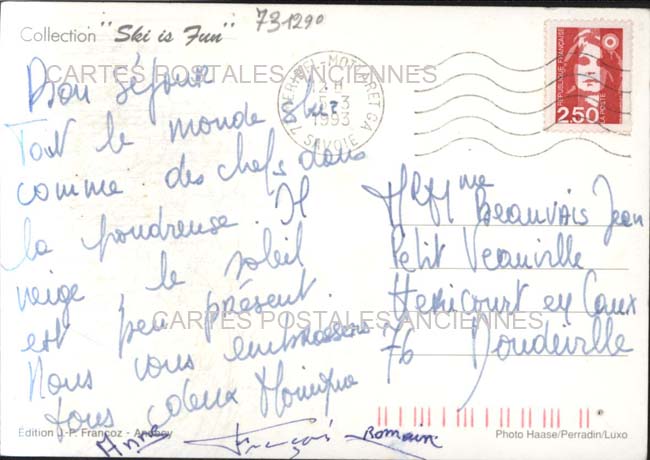 Collection "Ski is Fun"
731290
Bon séjour
Tout le monde skie
comme des chefs dans
la poudreuse. Il
neige, le soleil
est peu présent.
Nous vous embrassons
tous deux Monique
Anne François Romain
CARTES POSTALES ANCIENNES
CARTES POSTALES ANCIENNES
MOTTARET
1993
SAVOIE
REPUBLIQUE FRANÇAISE
LA POSTE
2,50
Mr Mme Beauvais Jean
Petit Veauville
Hericourt en Caux
76 Doudeville
Edition J.-P. Francoz - Annecy
Photo Haase/Perradin/Luxo